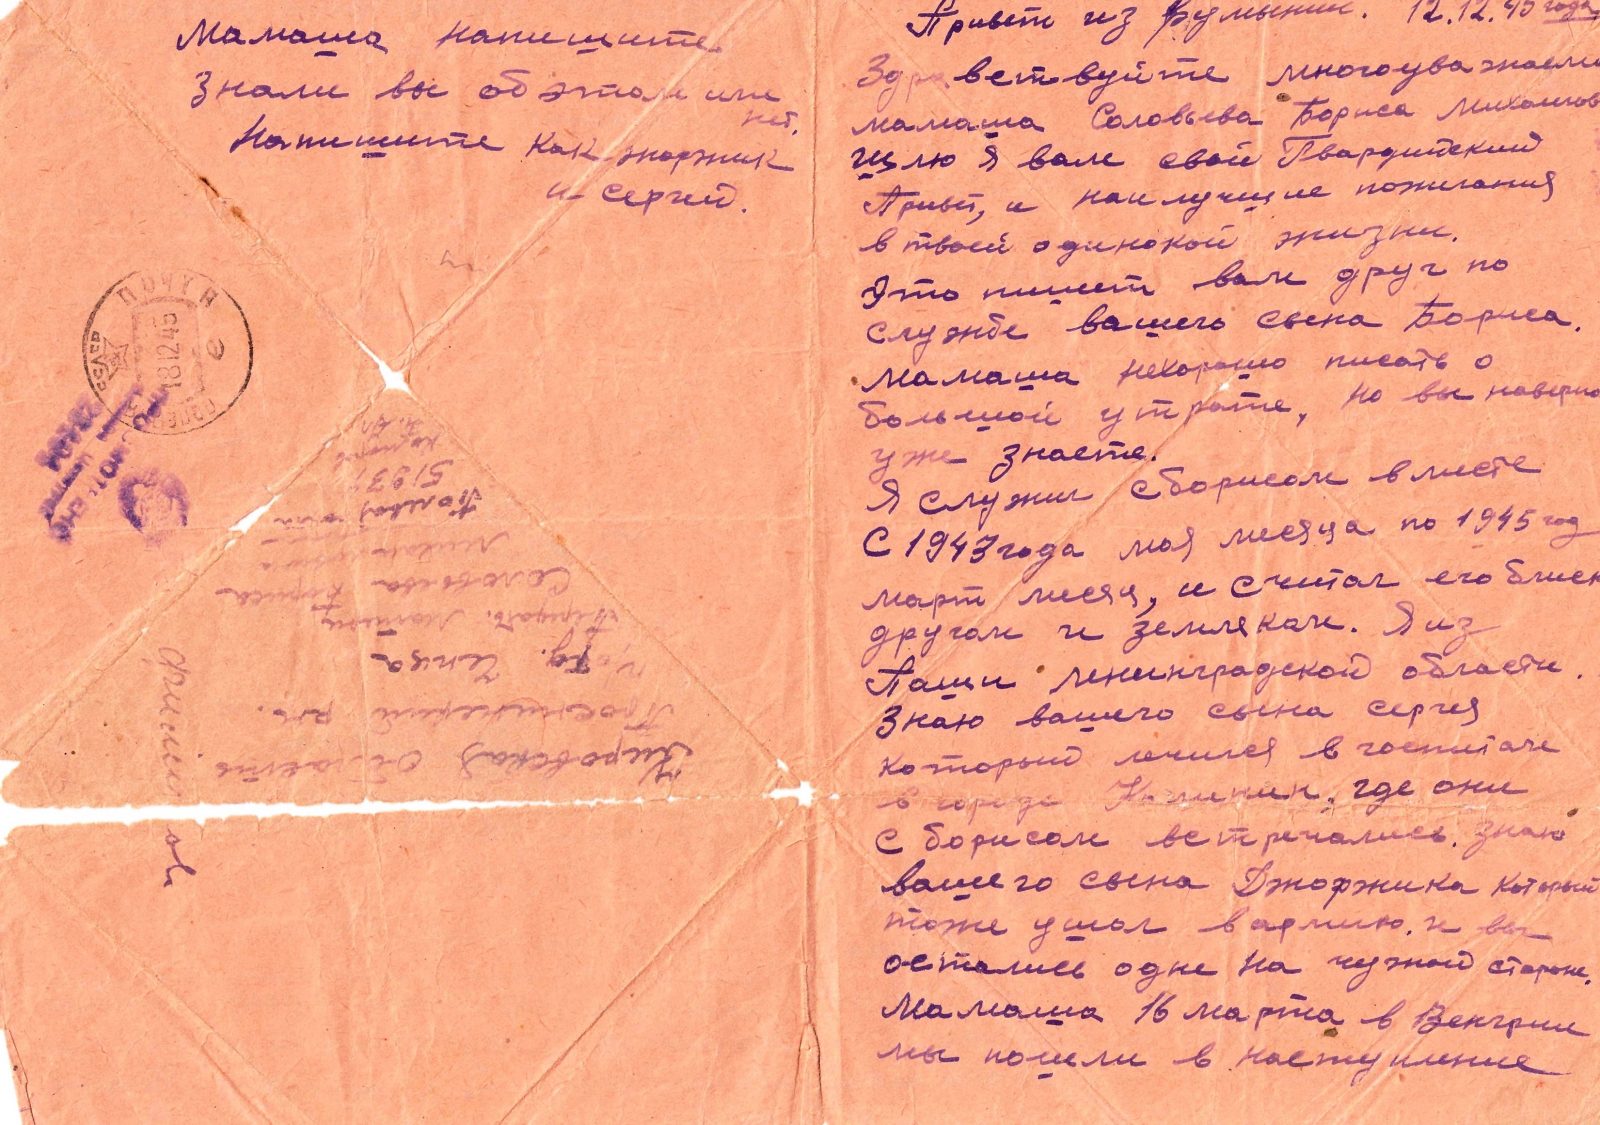 Мамаша напишите
Знали вы об этом или
нет.
Напишите как жоржик
и Сергей.
ПОЧТА
18 12 45
Кировская область
Просницкий р-н.
Чепца
Соловьева
Бориса
51931
Привет из Румынии. 12.12.45 года
Здравствуйте многоуважаемая
мамаша Соловьева Бориса Михайлов
Шлю я вам свой Гвардейский
Привет, и наилучшие пожелания
в твоей одинокой жизни.
Это пишет вам друг по
службе вашего сына Бориса.
Мамаша нехорошо писать о
большой утрате, но вы наверно
уже знаете.
Я служил с борисом вместе
С 1943 года мая месяца по 1945 год
март месяц, и считал его близк
другом и земляком. Я из
Паши ленинградской области.
Знаю вашего сына сергея
который лечился в госпитале
в городе Калинин, где они
с борисом встречались. знаю
вашего сына Джоржика который
тоже ушол в армию. и вы
остались одне на чужой стороне.
Мамаша 16 марта в Венгрии
мы пошли в наступление